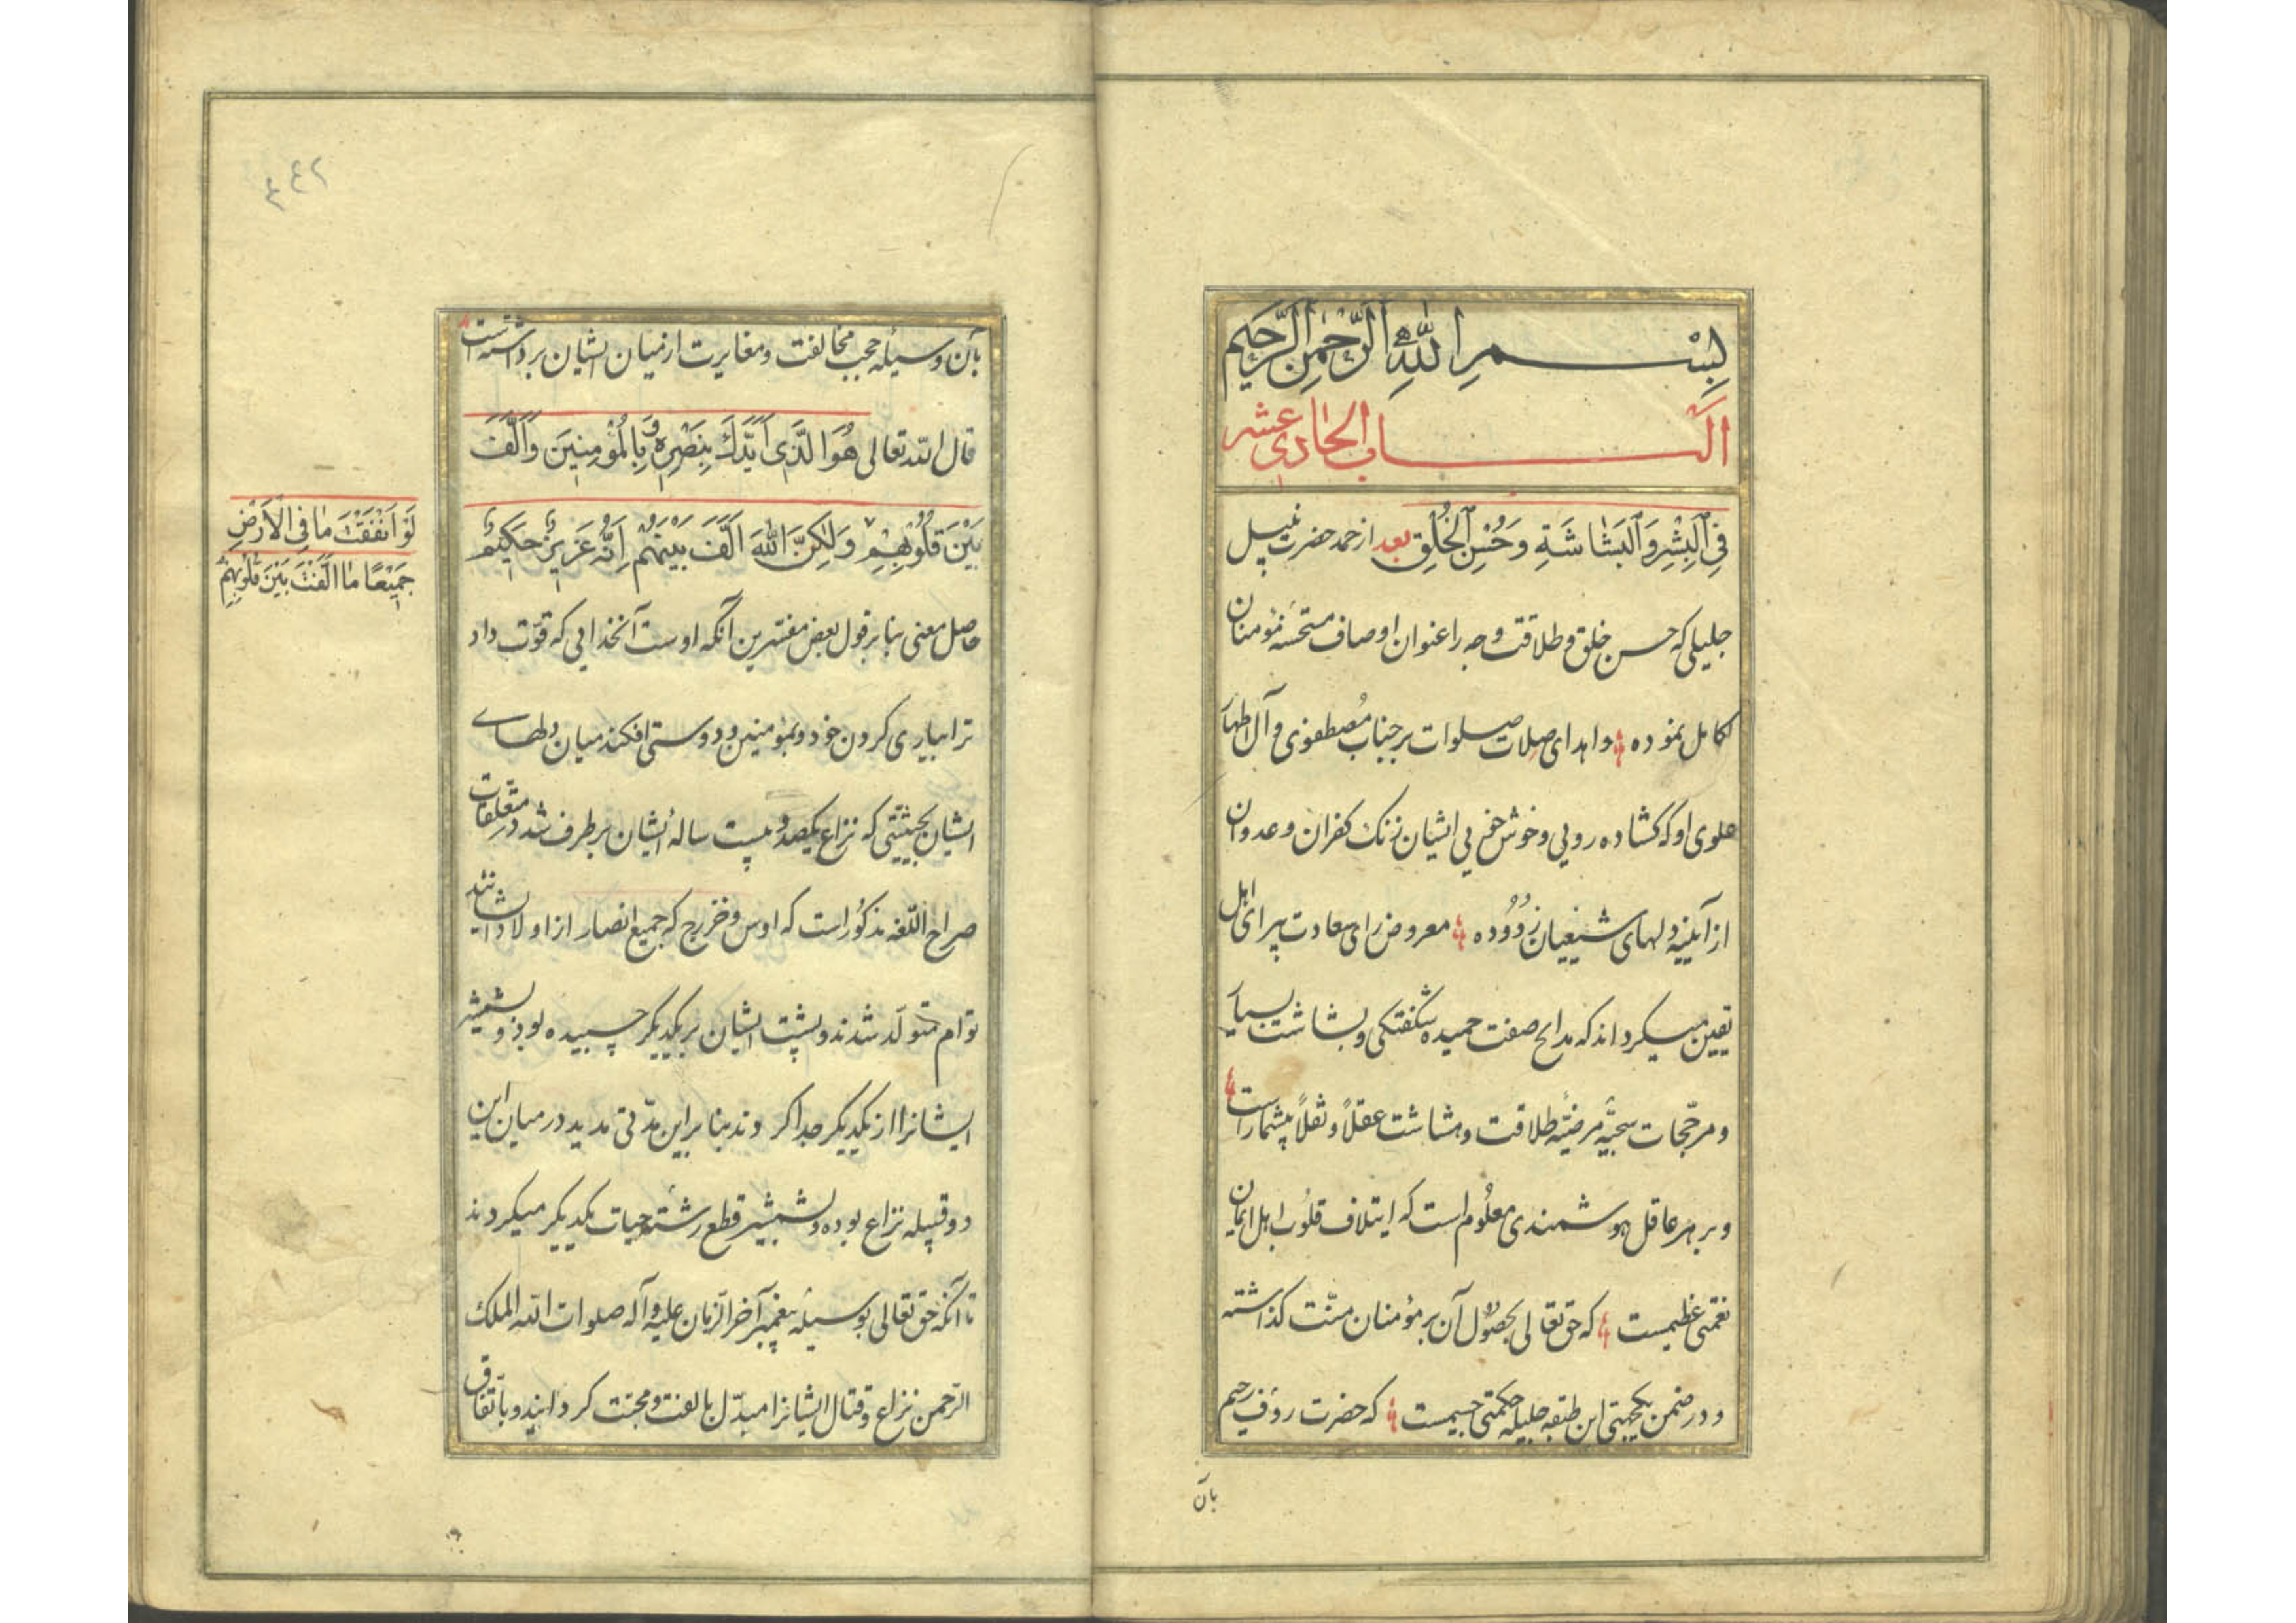 بِسْمِ اللّٰهِ الرَّحْمٰنِ الرَّحِيمِ
الباب الحادى عشر
فِى الْبِشْرِ وَالْبَشَاشَةِ وَحُسْنِ الْخُلُقِ بعد از حمد حضرت
جليلى كه حسن خلق و طلاقت وجه را عنوان اوصاف مستحسنهٔ مؤمنان
كامل نموده و اهداى صلات صلوات بر جناب مُصطفوى و آل اطهار
علوى او كه كشاده رويى و خوش خويى ايشان زنك كفران و عدوان
از آيينهٔ دلهاى شيعيان زدوده معروض راى سعادت پيراى اهل
يقين ميكرداند كه مدايح صفت حميده شكفتكى و بشاشت بسيار
و مرجّحات سجيّه مرضيّه طلاقت و هشاشت عقلاً و نقلاً بيشمار است
و بر هر عاقل هوشمندى معلُوم است كه ايتلاف قلُوب اهل ايمان
نعمتى عظيمست كه حق تعالى بحصُول آن بر مؤمنان منّت كذاشته
و در ضمن يكجهتى اين طبقه جليله حكمتى جسيمست كه حضرت رؤف رحيم
بآن
٤٤٢
بآن وسيله حجب مخالفت و مغايرت از ميان ايشان برداشته است
قال الله تعالى هُوَ الَّذِى اَيَّدَكَ بِنَصْرِهِ وَبِالْمُؤْمِنِينَ وَاَلَّفَ
بَيْنَ قُلُوبِهِمْ وَلٰكِنَّ اللّٰهَ اَلَّفَ بَيْنَهُمْ اِنَّهُ عَزِيزٌ حَكِيمٌ
لَوْ اَنْفَقْتَ مَا فِى الْاَرْضِ
جَمِيعًا مَا اَلَّفْتَ بَيْنَ قُلُوبِهِمْ
حاصل معنى بنا بر قول بعض مفسّرين آنكه اوست آنخدايى كه قوّت داد
ترا بيارى كردن خود و بمؤمنين و دوستى افكند ميان دلهاى
ايشان بحيثيتى كه نزاع يكصد و بيست سالهٔ ايشان بر طرف شد در متعلقات
صراح اللّغه مذكور است كه اوس و خزرج كه جميع انصار از اولاد ايشانند
توام متولّد شدند و پشت ايشان بر يكديكر چسبيده بود و بشمشير
ايشانرا از يكديكر جدا كردند بنا براين مدّتى مديد در ميان اين
دو قبيله نزاع بوده و بشمشير قطع رشته حيات يكديكر ميكردند
تا آنكه حق تعالى بوسيله پيغمبر آخر الزمان عليه و آله صلوات الله الملك
الرّحمن نزاع و قتال ايشانرا مبدّل بالفت و محبّت كردانيد و باتّفاق